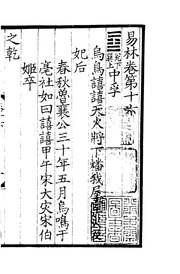 易林卷第十
中孚
烏鳥譆譆天火將下燔我屋
妃后
春秋魯襄公三十年五月烏鳴于
亳社如曰譆譆甲午宋大災宋伯
姬卒
之乾